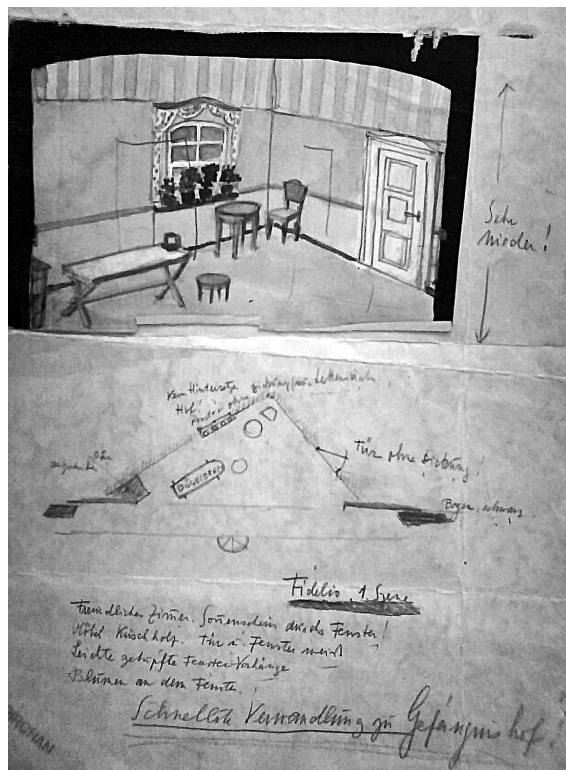 Sehr
nieder!
Kein Hintersetzer
Hof!
Fenster ohne
Ofen
angedeutet
BÜGELBRETT
Tür ohne Dickung!
Bogen, schwarz
Fidelio, 1. Szene
Freundliches Zimmer. Sonnenschein durchs Fenster!
Möbel Kirschholz. Tür u. Fenster weiss
Leichte getüpfte Fenster-Vorhänge
Blumen an dem Fenster!
Schnellste Verwandlung zu Gefängnishof!